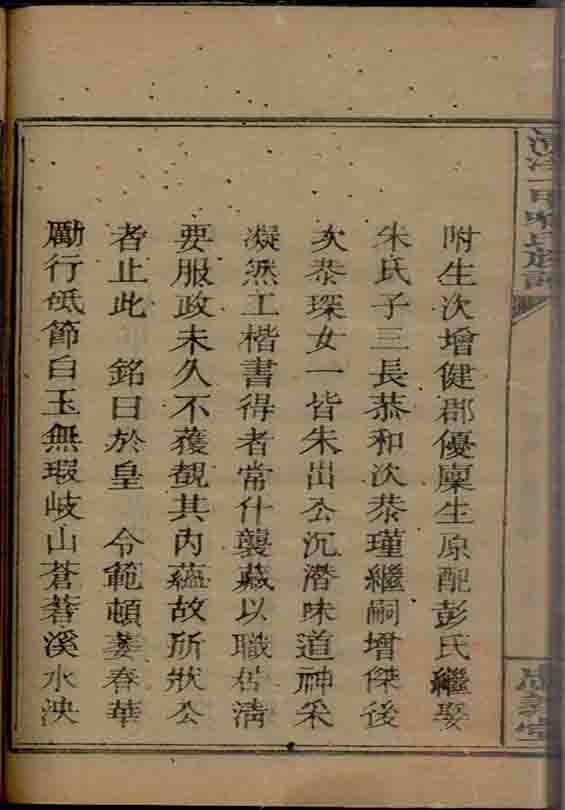 附生次增健郡優廩生原配彭氏繼娶
朱氏子三長恭和次恭瑾繼嗣增傑後
次恭琛女一皆朱出公沉潛味道神采
凝然工楷書得者常什襲藏以職居清
要服政未久不獲覩其內蘊故所狀公
者止此 銘曰於皇 令範頓萎春華
勵行砥節白玉無瑕岐山蒼蒼溪水泱